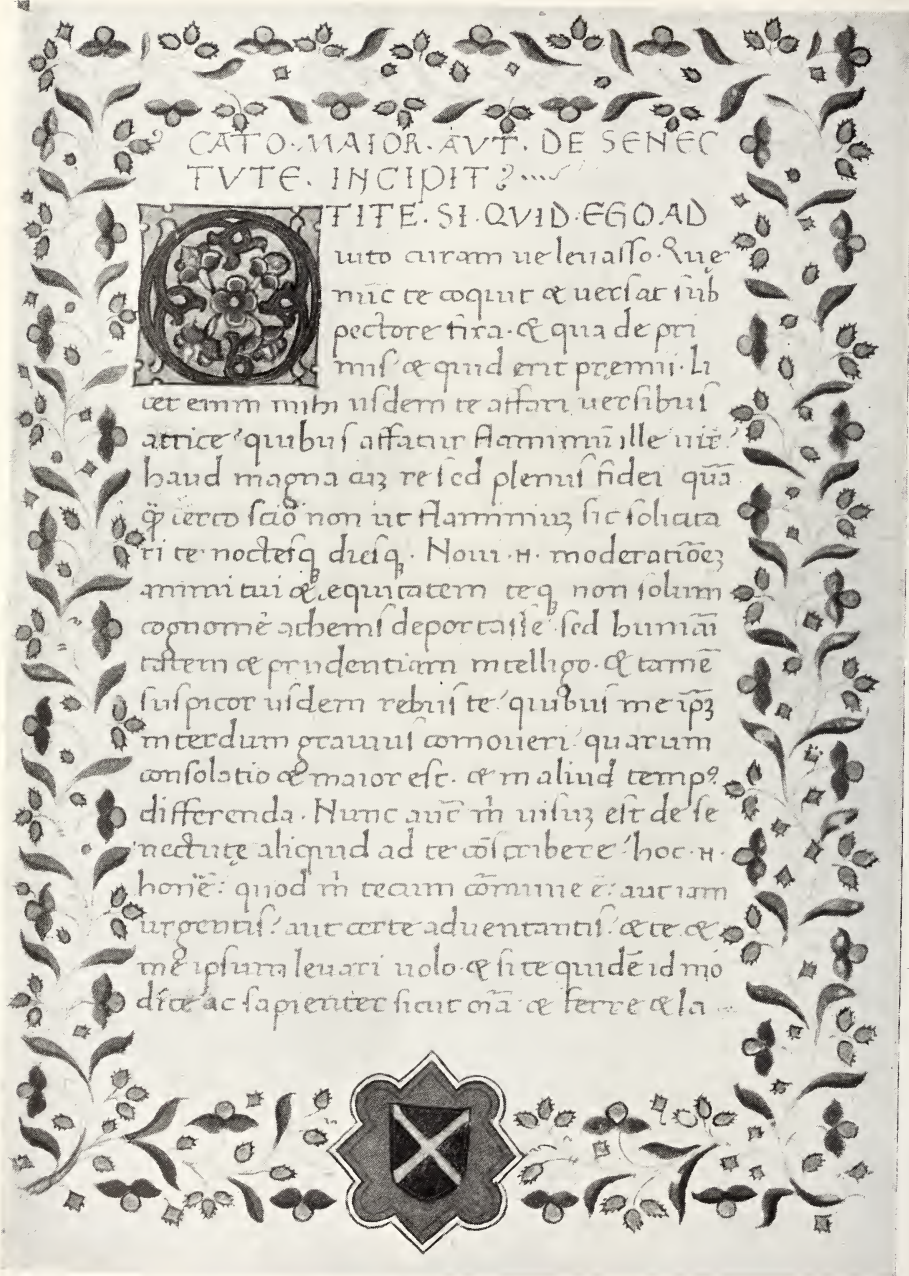 CATO·MAIOR·AVT·DE SENEC
TVTE·INCIPIT
O TITE·SI·QVID·EGO AD
iuto curam ue leuasso. Quę
nūc te coquit & uersat sub
pectore fixa. & qua de pri
mis & quid erit pręmii. Li
cet enim mihi iisdem te affari uersibus
attice quibus affatur flaminiū ille uir
haud magna cuʒ re sed plenus fidei quā
certo scio non ut flaminiuʒ sic solicita
ri te noctesqꝫ diesqꝫ. Noui .n. moderatiōeʒ
animi tui & equitatem teqꝫ non solum
cognomē athenis deportasse sed humāi
tatem & prudentiam intelligo. & tamē
suspicor iisdem rebus te quibus me ip̄ʒ
interdum grauius comoueri quarum
consolatio & maior est. & in aliud tempꝰ
differenda. Nunc aut̄ m̄ uisuʒ est de se
nectutę aliquid ad te cōscribere hoc .n.
quod m̄ tecum cōmune ē aut iam
urgentis aut certe aduentantis & te &
me ipsum leuari uolo & si te quidē id mo
dice ac sapienter sicut oīa & ferre & la